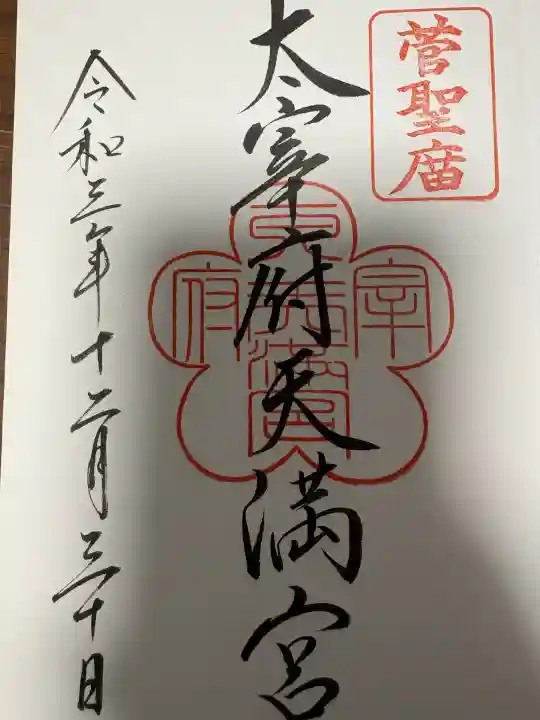 菅聖庿
太宰府天満宮
令和三年十二月三十日